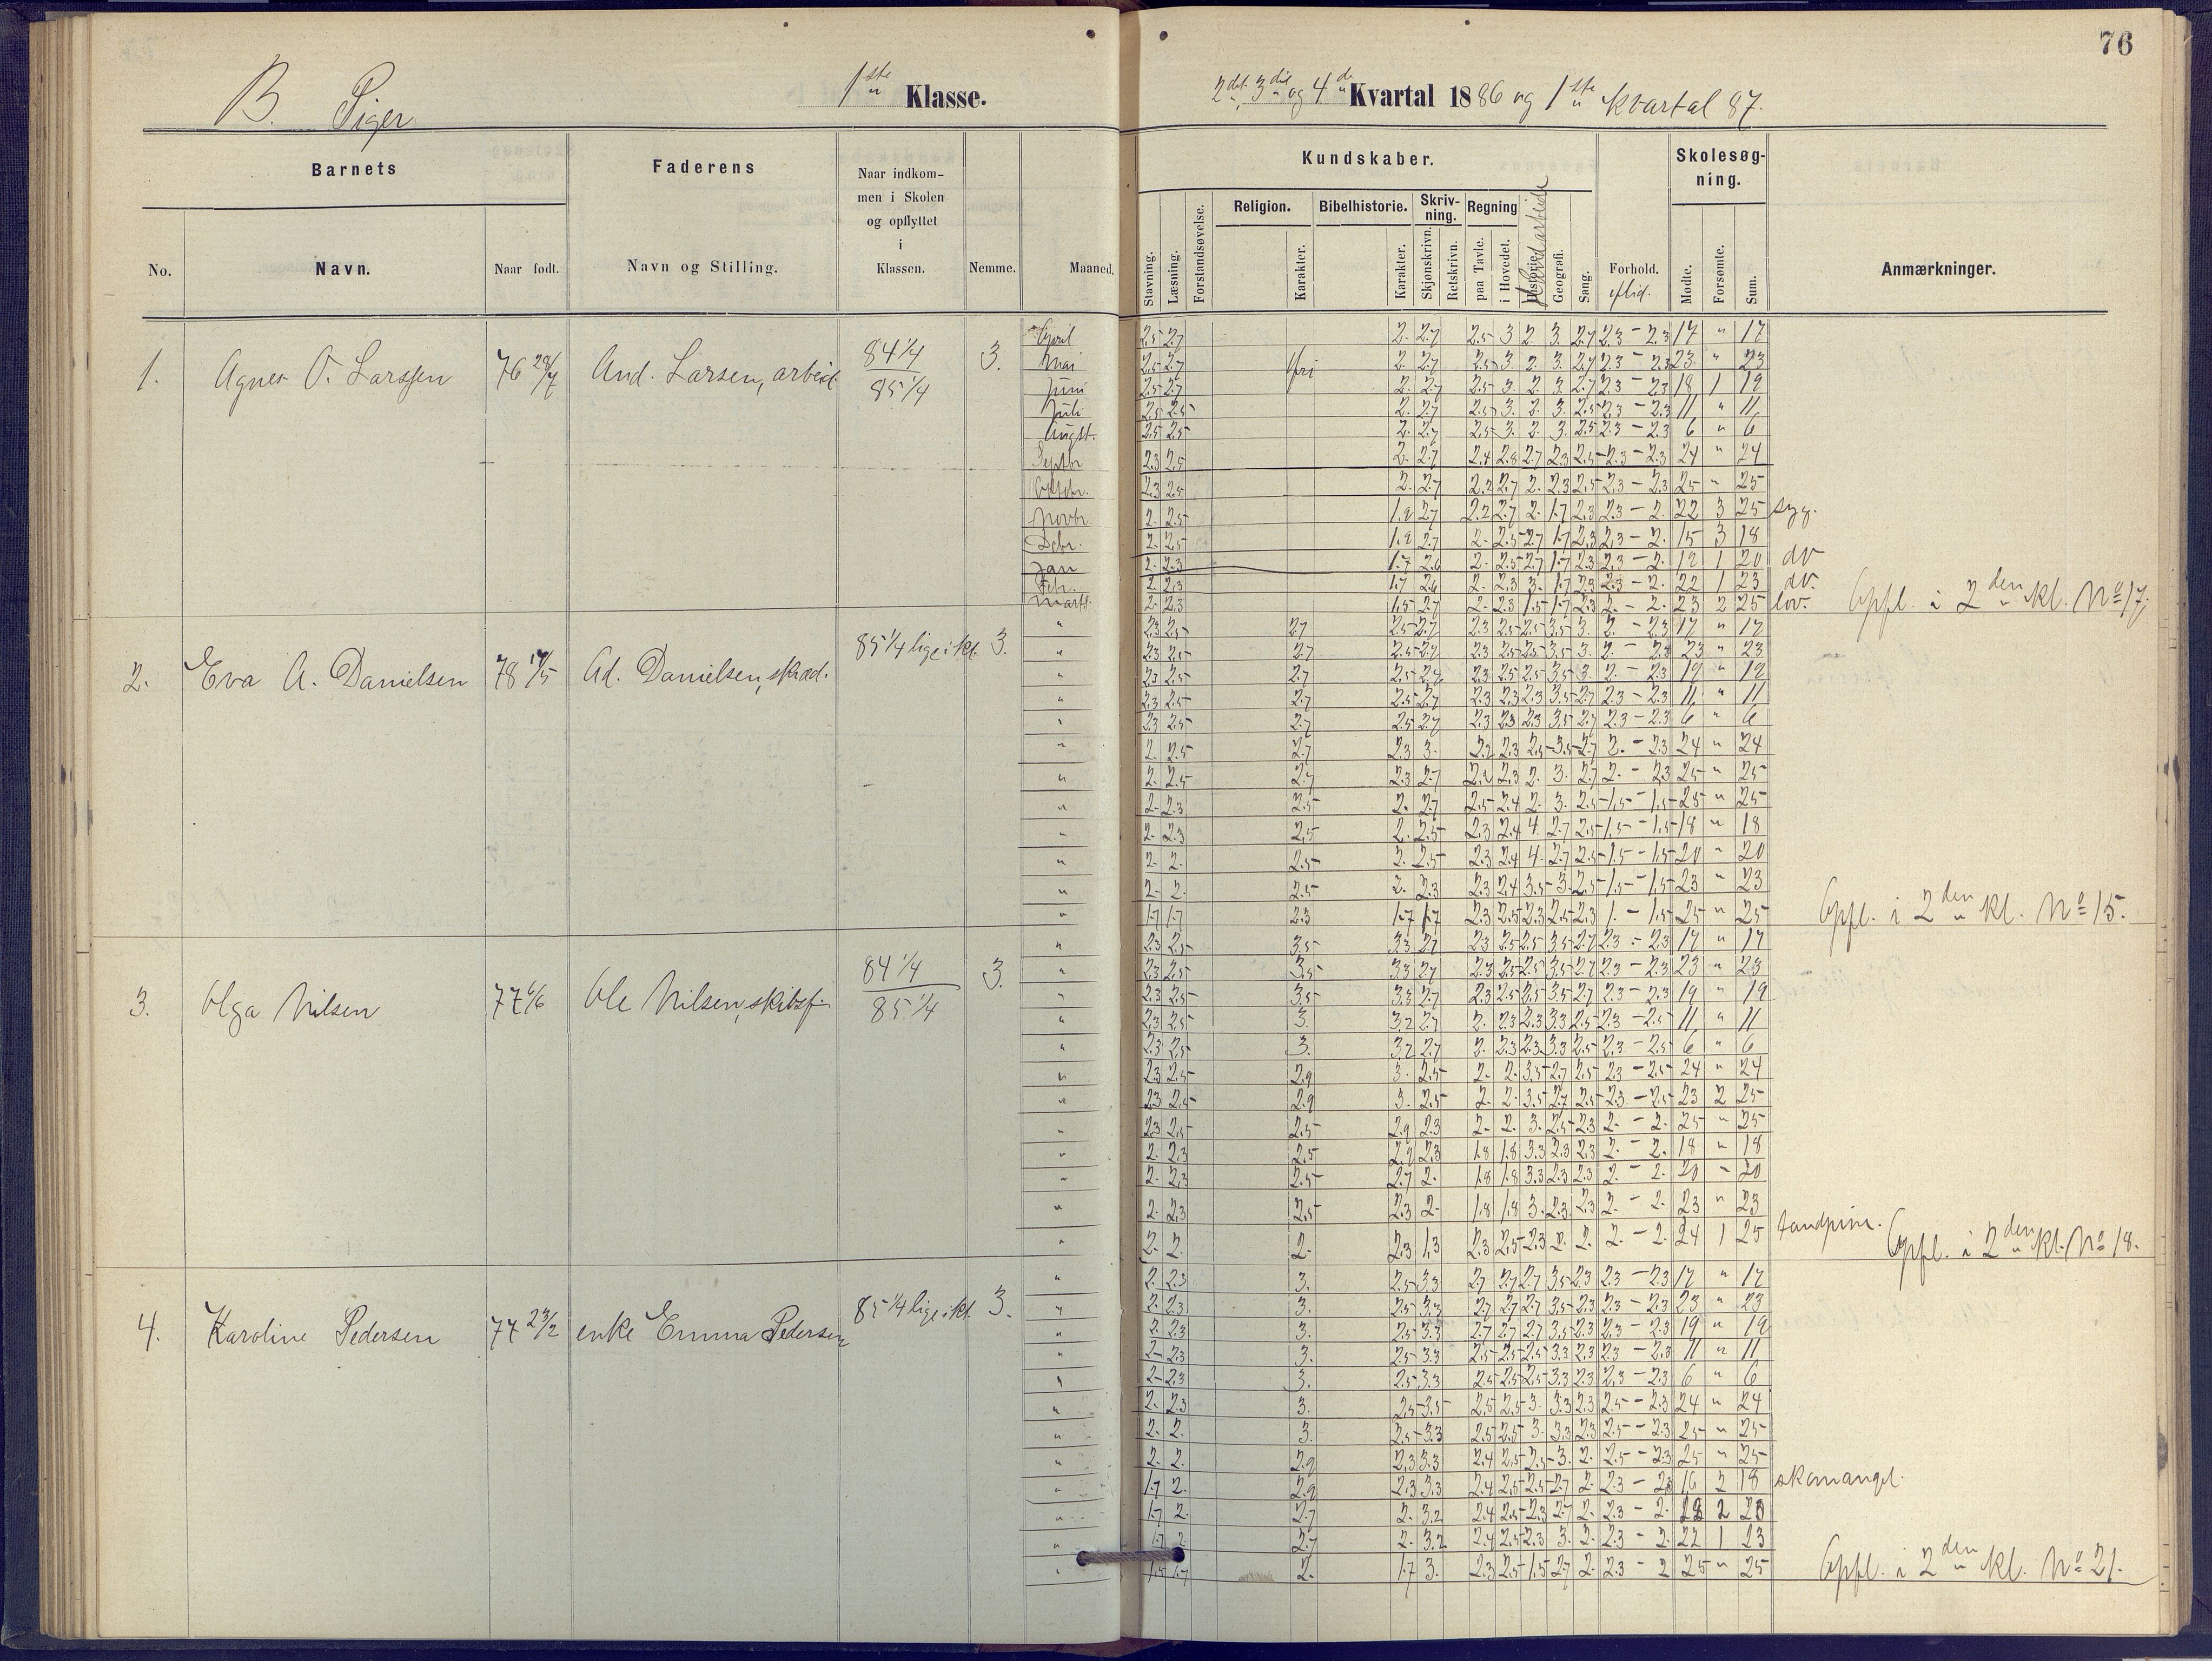 76
B. Piger
1ste Klasse.
2det, 3die og 4de Kvartal 1886 og 1ste Kvartal 87.
Barnets
Faderens
Naar indkom-
men i Skolen
og opflyttet
i
Klassen.
Kundskaber.
Skolesøg-
ning.
Religion. Bibelhistorie. Skriv-
ning. Regning
No. Navn. Naar født. Navn og Stilling. Nemme. Maaned.
Stavning. Læsning. Forstandsøvelse. Karakter. Karakter. Skjønskrivn. Retskrivn. paa Tavle. i Hovedet. Historie. Haandarbeide Geografi. Sang. Forhold. flid. Mødte. Forsømte. Sum. Anmærkninger.
1. Agnes O. Larssen And. Larsen, arbeid. 84 1/4 3.
85 1/4
April 2.5 2.7 2. 2.7 2.5 3 2. 3. 2.7 2.3 - 2.3 17 " 17
Mai 2.5 2.7 fri 2. 2.7 2.5 3. 2. 3. 2.7 2.3 - 2.3 23 " 23
Juni 2.5 2.7 2. 2.7 2.5 3. 2. 3. 2.7 2.3 - 2.3 18 1 19
Juli 2.5 2.5 2. 2.7 2.5 3. 2. 3. 2.5 2.3 - 2.3 11 " 11
Augst. 2.5 2.5 2. 2.7 2.5 3. 2. 3. 2.5 2.3 - 2.3 6 " 6
Septbr 2.3 2.5 2. 2.7 2.4 2.8 2.7 2.3 2.5 2.3 - 2.3 24 " 24
Oktobr. 2.3 2.5 2. 2.7 2.2 2.7 2. 2.3 2.5 2.3 - 2.3 25 " 25
Novbr. 2. 2.5 1.9 2.7 2.2 2.7 2. 1.7 2.3 2.3 - 2. 22 3 25 syg.
Dcbr. 2. 2.5 1.9 2.7 2. 2.5 2.7 1.7 2.3 2.3 - 2. 15 3 18
Jan 2. 2.3 1.7 2.6 2. 2.5 2.7 1.7 2.3 2.3 - 2. 19 1 20 do
Febr. 2. 2.3 1.7 2.6 2. 2.3 3. 1.7 2.3 2.3 - 2. 22 1 23 do.
Marts. 2. 2.3 1.5 2.7 2. 2.3 1.5 1.7 2.3 2. - 2. 23 2 25 lov. Opfl. i 2den kl. No 17.
2. Eva A. Danielsen 78 17/5 Ad. Danielsen, skræd. 85 1/4 lige i kl. 3.
" 2.3 2.5 2.7 2.5 2.7 2.3 2.5 2.5 3.5 3. 2. - 2.3 17 " 17
" 2.3 2.5 2.7 2.5 2.7 2.3 2.5 2.5 3.5 3. 2. - 2.3 23 " 23
" 2.3 2.5 2.7 2.5 2.7 2.3 2.5 2.5 3.5 3. 2. - 2.3 19 " 19
" 2.3 2.5 2.7 2.5 2.7 2.3 2.3 2.3 3.5 2.7 2.3 - 2.3 11 " 11
" 2.3 2.5 2.7 2.5 2.7 2.3 2.3 2.3 3.5 2.7 2.3 - 2.3 6 " 6
" 2. 2.5 2.7 2.3 3. 2.2 2.3 2.5 3.5 2.7 2. - 2.3 24 " 24
" 2. 2.5 2.7 2.3 2.7 2.2 2.3 2. 3. 2.7 2. - 2.3 25 " 25
" 2. 2.3 2.5 2. 2.7 2.5 2.4 2. 3. 2.5 1.5 - 1.5 25 " 25
" 2. 2.3 2.5 2. 2.5 2.3 2.4 4. 2.7 2.5 1.5 - 1.5 18 " 18
" 2. 2. 2.5 2. 2.5 2.3 2.4 4. 2.7 2.5 1.5 - 1.5 20 " 20
" 2. 2. 2.5 2. 2.3 2.3 2.4 3.5 3. 2.5 1.5 - 1.5 23 " 23
" 1.7 1.7 2.3 1.7 1.7 2.3 2.5 2.3 2.5 2.3 1. - 1.5 25 " 25 Opfl. i 2den kl. No 15.
3. Olga Nilsen 77 Ole Nilsen, skibsf. 84 1/4 3.
85 1/4
" 2.3 2.5 3.5 3.3 2.7 2.3 2.5 2.5 3.5 2.7 2.3 - 2.3 17 " 17
" 2.3 2.5 3.5 3.3 2.7 2.3 2.5 2.5 3.5 2.7 2.3 - 2.3 23 " 23
" 2.3 2.5 3.5 3.3 2.7 2.3 2.5 2.5 3.5 2.7 2.3 - 2.3 19 " 19
" 2.3 2.5 3. 3.2 2.7 2. 2.3 2.3 3.3 2.5 2.3 - 2.5 11 " 11
" 2.3 2.5 3. 3.2 2.7 2. 2.3 2.3 3.3 2.5 2.3 - 2.5 6 " 6
" 2.3 2.5 2.9 3. 2.5 2. 2. 3.5 2.7 2.5 2.3 - 2.5 24 " 24
" 2.3 2.5 2.9 3. 2.5 2. 2. 3.5 2.7 2.5 2.3 - 2.5 23 2 25
" 2.3 2.5 2.5 2.9 2.3 2. 2. 3. 2.5 2.3 2. - 2. 25 " 25
" 2. 2.3 2.5 2.9 2.3 1.8 1.8 3.3 2.3 2.3 2. - 2. 18 " 18
" 2. 2.3 2.5 2.7 2. 1.8 1.8 3.3 2.3 2.3 2. - 2. 20 " 20
" 2. 2.3 2.5 2.3 2. 1.8 1.8 3. 2.3 2.3 2. - 2. 23 " 23
" 2. 2. 2. 2.3 1.3 2.3 2.5 2.3 2. 2. 2. - 2. 24 1 25 tandpine. Opfl. i 2den kl. No 18.
4. Karoline Pedersen 77 23/2 enke Emma Pedersen 85 1/4 lige i kl. 3.
" 2. 2.3 3. 2.5 3.3 2.7 2.7 2.7 3.5 2.3 2.3 - 2.3 17 " 17
" 2. 2.3 3. 2.5 3.3 2.7 2.7 2.7 3.5 2.3 2.3 - 2.3 23 " 23
" 2. 2.3 3. 2.5 3.3 2.7 2.7 2.7 3.5 2.3 2.3 - 2.3 19 " 19
" 2. 2.3 3. 2.5 3.3 2.5 2.5 2.5 3.3 2.3 2.3 - 2.3 11 " 11
" 2. 2.3 3. 2.5 3.3 2.5 2.5 2.5 3.3 2.3 2.3 - 2.3 6 " 6
" 2. 2.3 3. 2.5 3.5 2.5 2.5 3. 3.3 2.3 2.5 - 2.3 24 " 24
" 2. 2. 3. 2.5 3.3 2.5 2.5 3. 3.3 2.3 2.5 - 2.3 25 " 25
" 2. 2. 2.9 2.3 3.3 2.4 2.5 2.5 3. 2. 2.5 - 2.3 25 " 25
" 1.7 2. 2.9 2.3 3.3 2.4 2.5 2.5 2.7 2. 2.3 - 16 2 18 skomangel.
" 1.7 2. 2.7 2. 3.2 2.4 2.5 2.3 2.7 2. 2.3 - 2. 18 2 20
" 1.7 2 2.7 2. 3.2 2.4 2.5 2.3 3. 2. 2.3 - 2. 22 1 23
" 1.5 1.7 2. 1.7 3. 2.3 2.5 1.5 2.7 2. 2.3 - 2 25 " 25 Opfl. i 2den kl. No 21.